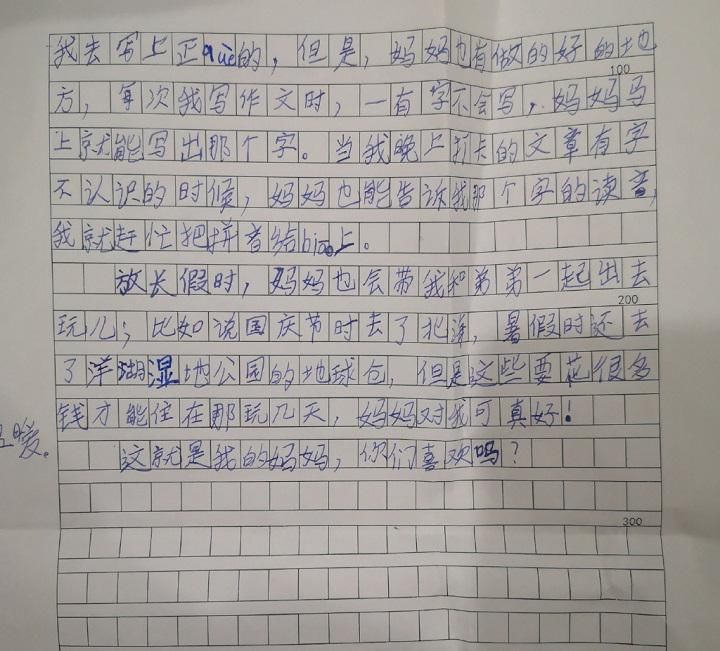 我去写上正què的，但是，妈妈也有做的好的地
100
方，每次我写作文时，一有字不会写，妈妈马
上就能写出那个字。当我晚上打卡的文章有字
不认识的时候，妈妈也能告诉我那个字的读音，
我就赶忙把拼音给biāo上。
放长假时，妈妈也会带我和弟弟一起出去
玩儿；比如说国庆节时去了北洋，暑假时还去
200
了洋湖湿地公园的地球仓，但是这些要花很多
钱才能住在那玩几天，妈妈对我可真好！
暖。
这就是我的妈妈，你们喜欢吗？
300